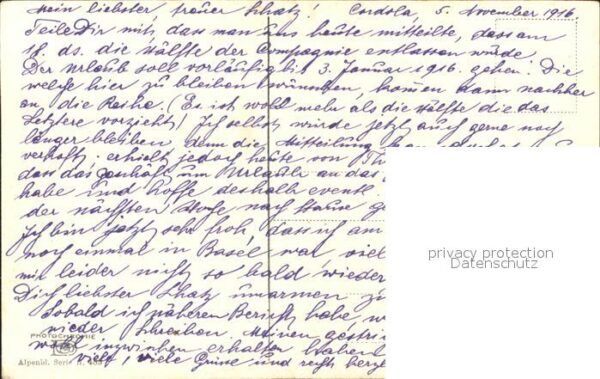 Mein liebster treuer Schatz! Cordola, 5. November 1916.
Teile Dir mit, dass man uns heute mitteilte, dass am
18. ds. die Hälfte der Compagnie entlassen würde.
Der Urlaub soll vorläufig bis 3. Januar 1916. gehen. Die
welche hier zu bleiben wünschten, kommen dann nachher
an die Reihe. (Es ist wohl mehr als die Hälfte die das
Letztere vorzieht) Ich selbst würde jetzt auch gerne noch
länger bleiben, denn die Mitteilung
erhielt jedoch heute von
dass das Geschäft um Urlaub an das
habe und hoffe deshalb event.
der nächsten Woche nach Hause
Ich bin jetzt sehr froh, dass ich am
noch einmal in Basel war, viel
mir leider nicht so bald wieder
Dich liebster Schatz umarmen zu
Sobald ich näheren Bericht habe, w
wieder schreiben. Meinen gestri
wohl inzwischen erhalten haben
viele, viele Grüsse und recht herz
privacy protection
Datenschutz
PHOTOCHROMIE
Alpenbl. Serie